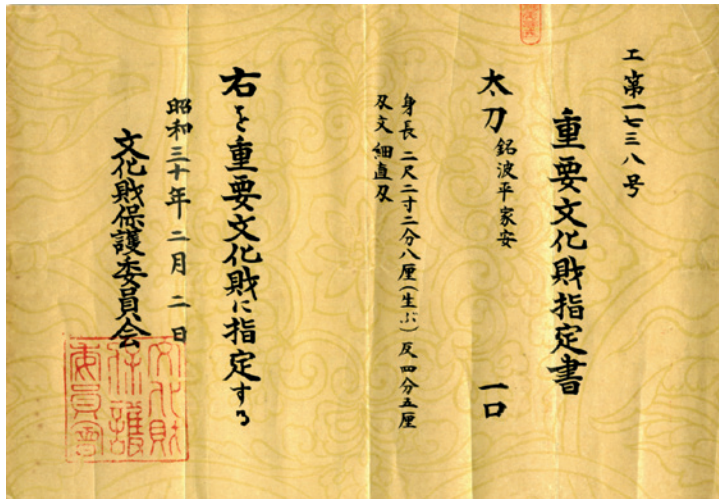 工第一七三八号
重要文化財指定書
太刀 銘波平家安 一口
身長 二尺二寸二分八厘(生ぶ) 反四分五厘
刄文 細直刄
右を重要文化財に指定する
昭和三十年二月二日
文化財保護委員会
文化財
保護
委員會